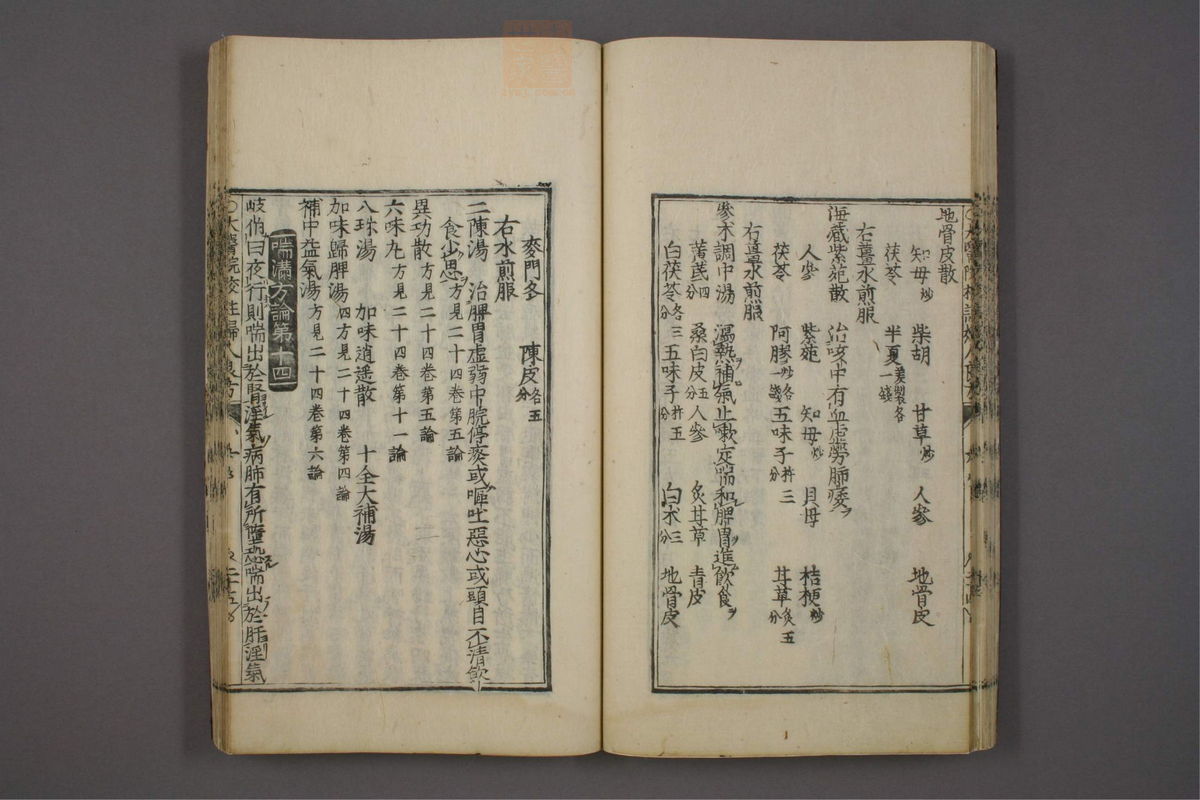 地骨皮散
知母炒 柴胡 甘草炒 人參 地骨皮
茯苓 半夏姜製各一錢
右薑水煎服
海藏紫菀散 治咳中有血虛勞肺痿
人參 紫菀 知母炒 貝母 桔梗炒
茯苓 阿膠炒各一錢 五味子杵三分 甘草炙五分
右薑水煎服
參朮調中湯 瀉熱補氣止嗽定喘和脾胃進飲食
黃芪四分 桑白皮五分 人參 炙甘草 青皮
白茯苓各三分 五味子杵五分 白朮三分 地骨皮
麥門冬 陳皮各五分
右水煎服
二陳湯 治脾胃虛弱中脘停痰或嘔吐惡心或頭目不清飲
食少思方見二十四卷第五論
異功散方見二十四卷第五論
六味丸方見二十四卷第十一論
八珍湯 加味逍遙散 十全大補湯
加味歸脾湯四方見二十四卷第四論
補中益氣湯方見二十四卷第六論
喘滿方論第十四
岐伯曰夜行則喘出於腎淫氣病肺有所墮恐喘出於肝淫氣
〇太醫院校註婦人良方